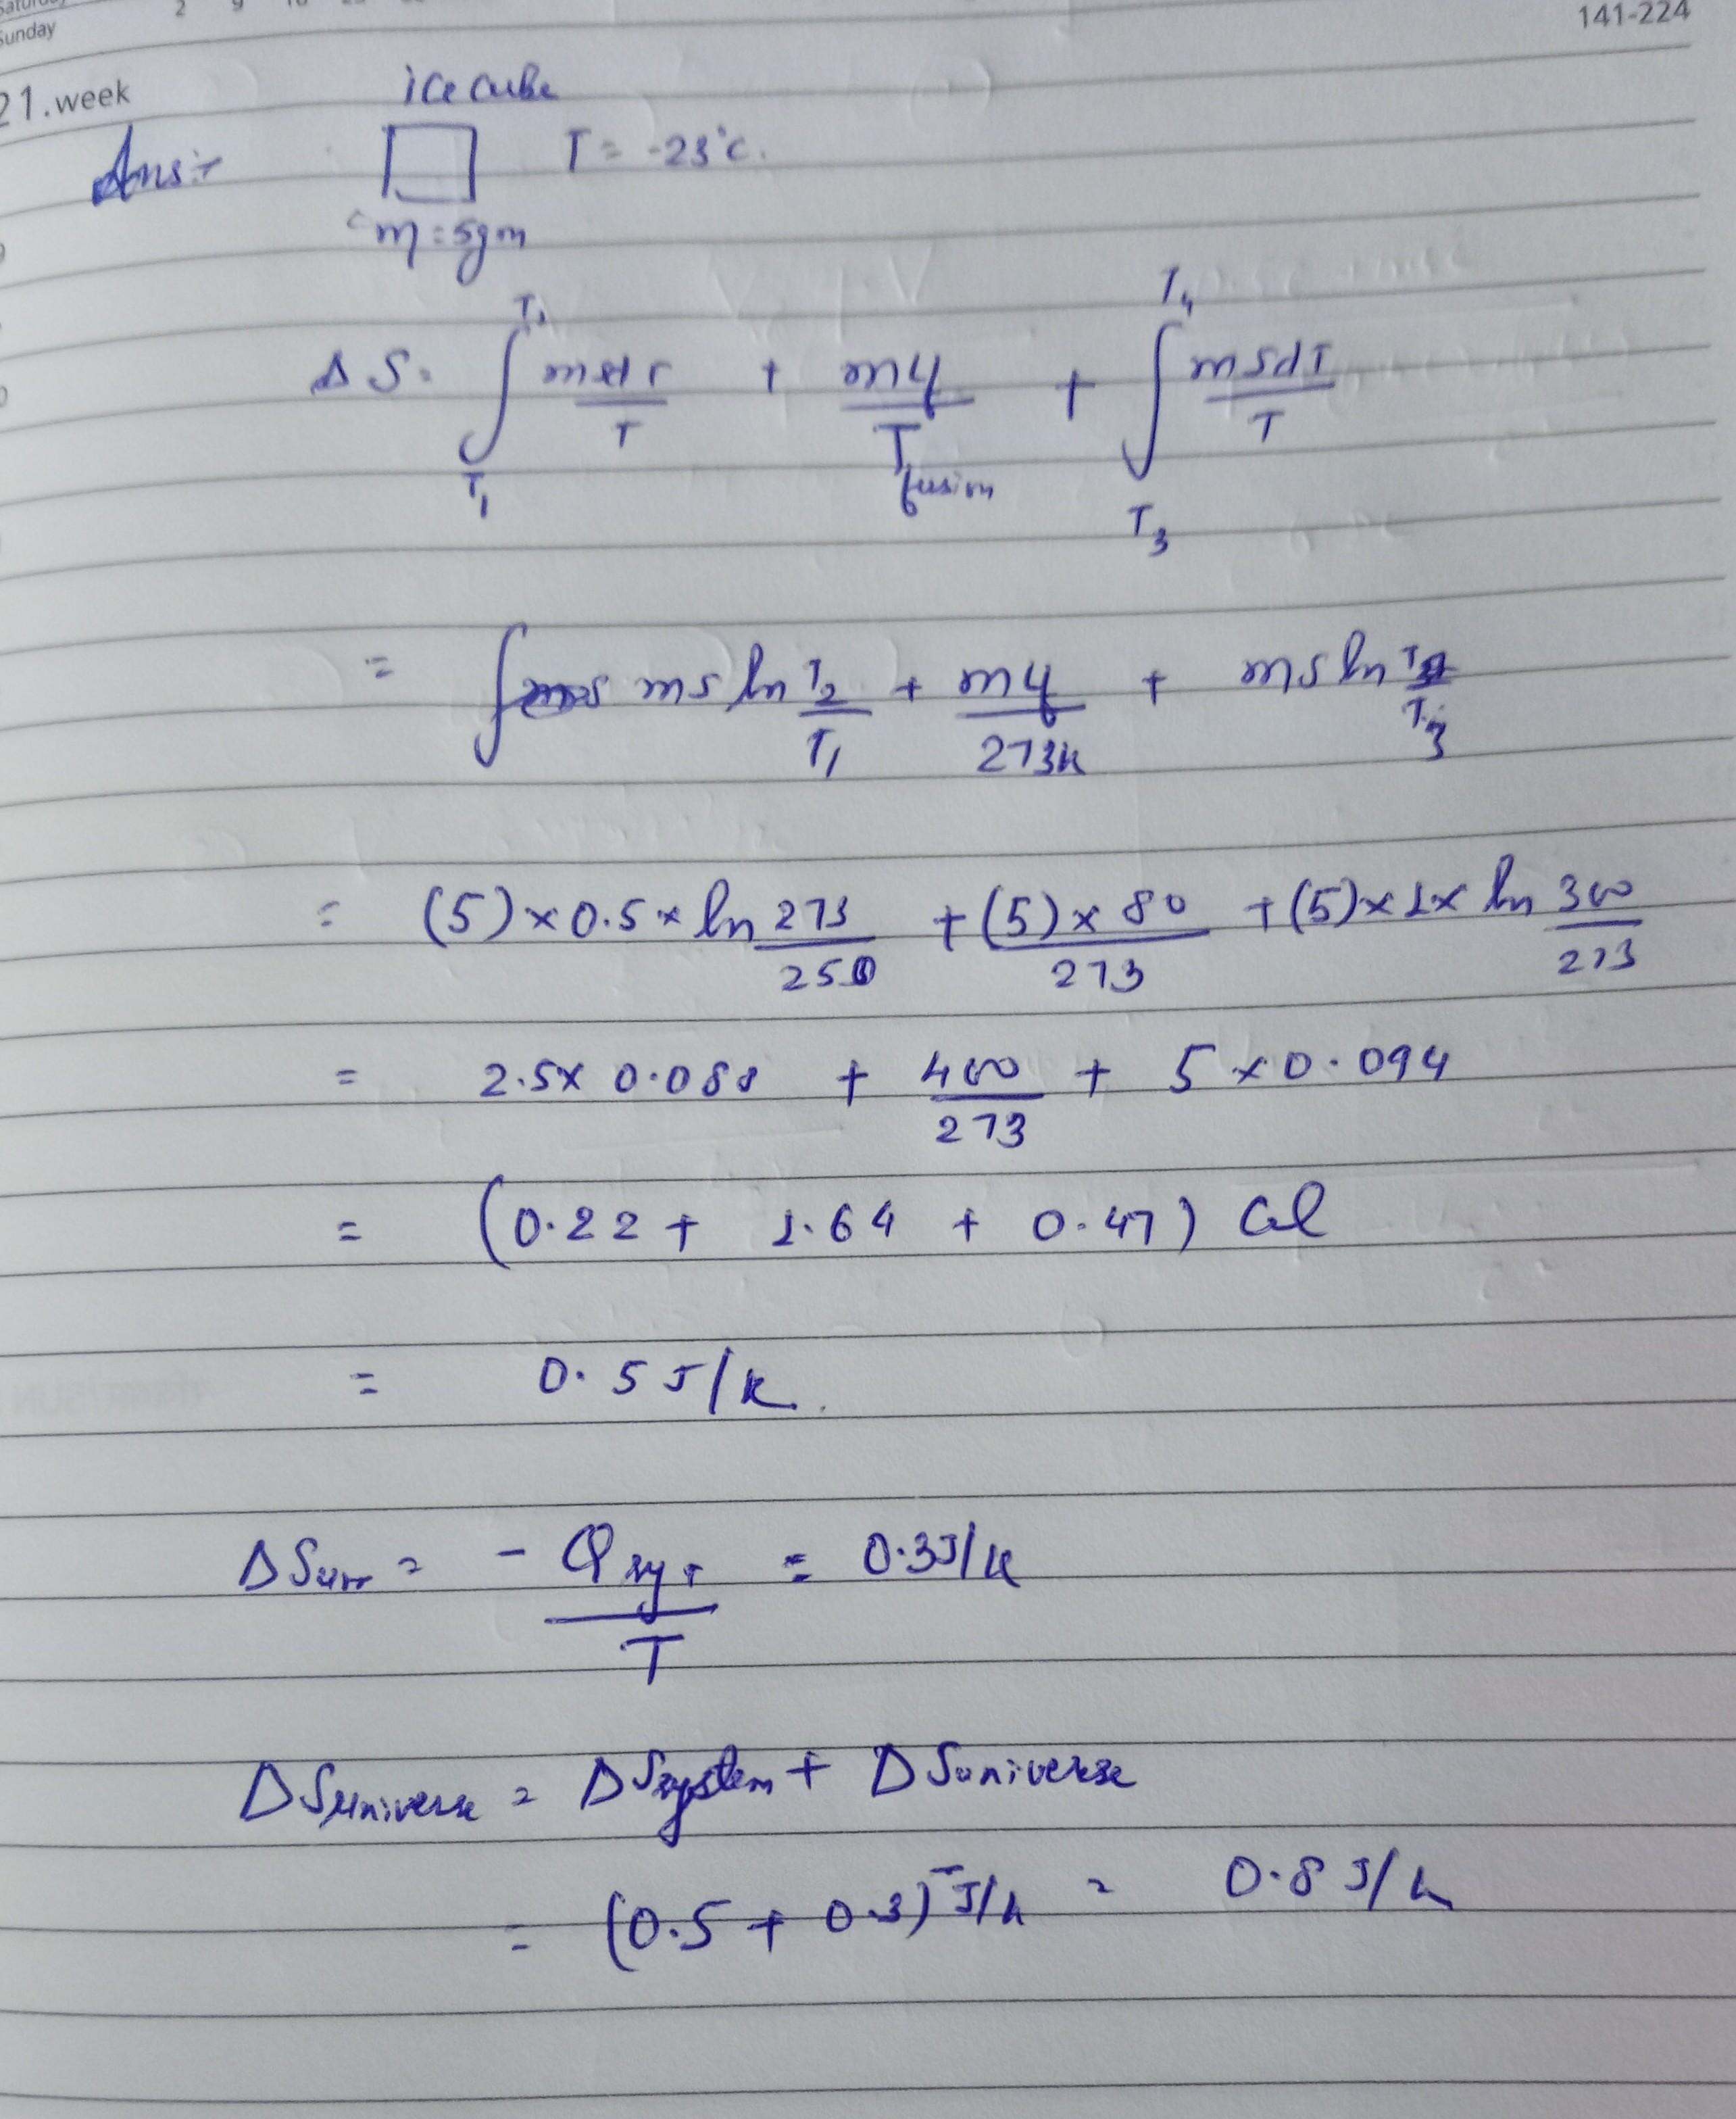 Sunday
2 9
141-224
21.week
ice cube
Ans:- T = -23°C.
m = 5gm
ΔS = ∫_{T₁}^{T₂} msdT/T + mLf/T_fusion + ∫_{T₃}^{T₄} msdT/T
= ∫ ms ln T₂/T₁ + mLf/273K + ms ln T₄/T₃
= (5)×0.5× ln 273/250 + (5)×80/273 + (5)×1× ln 300/273
= 2.5× 0.088 + 400/273 + 5 × 0.094
= (0.22 + 1.64 + 0.47) Cal
= 0.5 J/K.
ΔSurr = - Qsys/T = 0.3J/K
ΔSuniverse = ΔSsystem + ΔSuniverse
= (0.5 + 0.3) J/K = 0.8 J/K